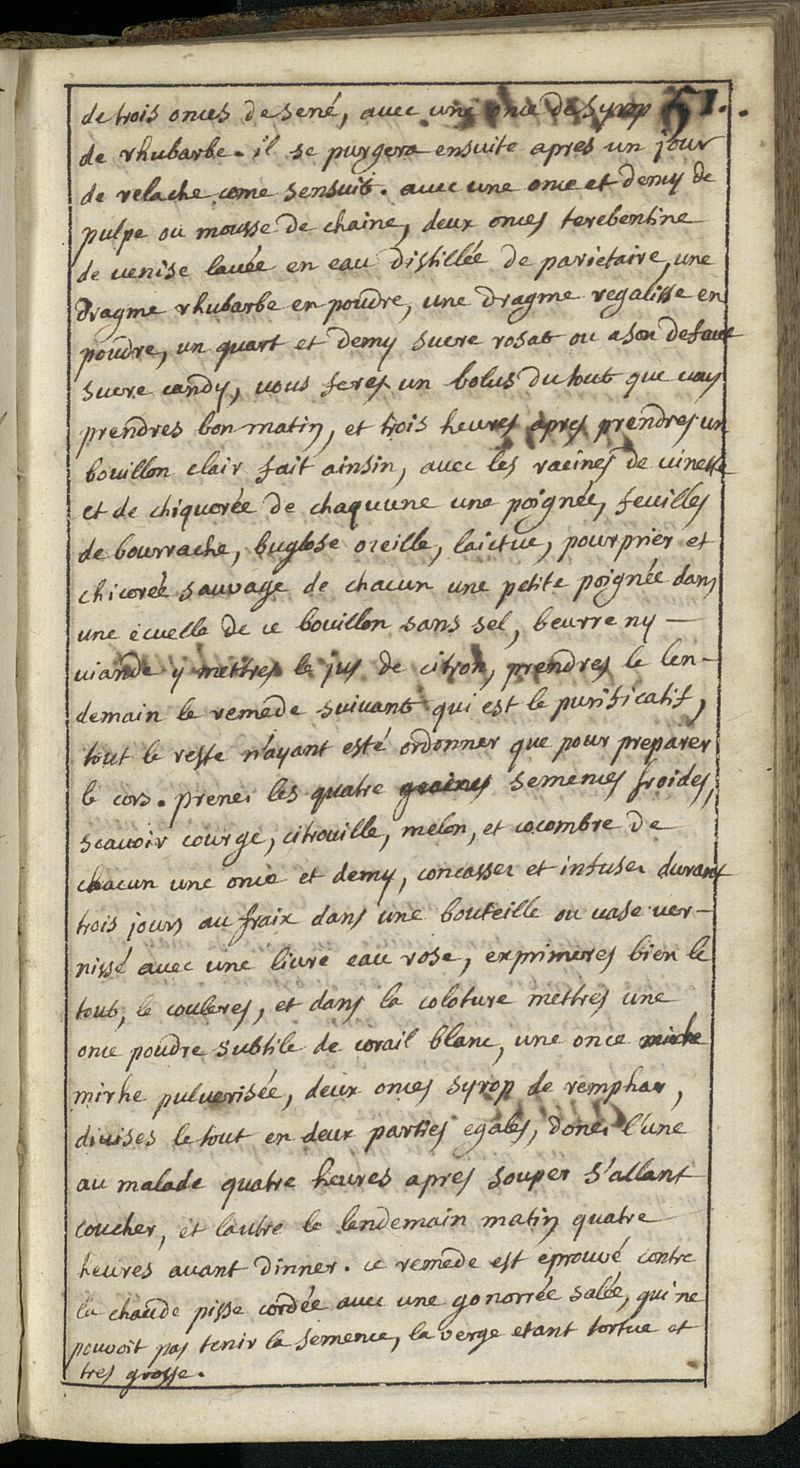 51.
de trois onces de sené, avec une once de syrop
de rhubarbe. il se purgera ensuite apres un jour
de relache come sensuit. avec une once et demy de
pulpe ou mousse de chaine, deux onces terebentine
de venise lavée en eau distillée de parietaire, une
dragme rhubarbe en poudre, une dragme regalisse en
poudre, un quart et demy sucre rosat ou a son defaut
sucre candy, vous feres un bolus du tout que vous
prendres bon matin, et trois heures apres prendres un
bouillon clair fait ainsin, avec les racines de vinette
et de chiquorée de chaquune une poignée, feuilles
de bourrache, buglose ozeille, laictue, pourprier et
chicoreé sauvage de chacun une petite poignée dans
une ecuelle de ce bouillon sans sel, beurre ny —
viande y mettres le jus de citron, prendres le len-
demain le remede suivant qui est le purificatif,
tout le reste n'ayant esté ordonner que pour preparer
le cors. prenes les quatre graines semences froides,
scavoir courge, citrouille, melon, et cocombre de
chacun une once et demy, concasser et infuser durant
trois jours au fraix dans une bouteille ou vase ver-
nissé avec une livre eau rose, exprimeres bien le
tout, le couleres, et dans la colature mettres une
once poudre subtile de corail blanc, une once mirhe
mirhe pulverisée, deux onces syrop de remphar,
divises le tout en deux parties egales, dones l'une
au malade quatre heures apres souper s'allant
coucher, et lautre le lendemain matin quatre
heures avant dinner. ce remede est eprouvé contre
la chaude pisse cordée avec une gonorrée salée, qui ne
pouvoit pas tenir la semence, la verge etant tortue et
tres grosse.